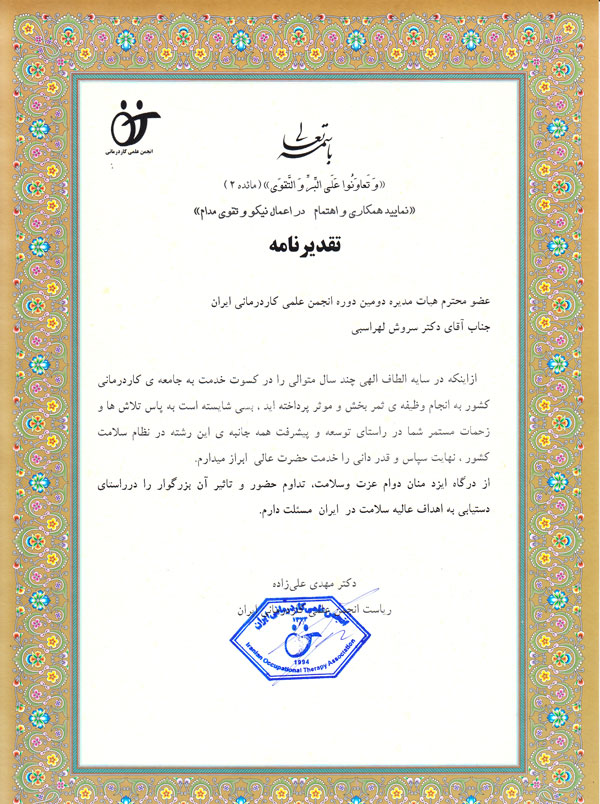 انجمن علمی کاردرمانی
باسمه تعالی
«وَ تَعاوَنُوا عَلَی البِرِّ وَ التَّقوَی» (مائده ۲)
«نمایید همکاری و اهتمام در اعمال نیکو و تقوی مدام»
تقدیرنامه
عضو محترم هیات مدیره دومین دوره انجمن علمی کاردرمانی ایران
جناب آقای دکتر سروش لهراسبی
ازاینکه در سایه الطاف الهی چند سال متوالی را در کسوت خدمت به جامعه ی کاردرمانی
کشور به انجام وظیفه ی ثمر بخش و موثر پرداخته اید ، بسی شایسته است به پاس تلاش ها و
زحمات مستمر شما در راستای توسعه و پیشرفت همه جانبه ی این رشته در نظام سلامت
کشور ، نهایت سپاس و قدر دانی را خدمت حضرت عالی ابراز میدارم.
از درگاه ایزد منان دوام عزت وسلامت، تداوم حضور و تاثیر آن بزرگوار را درراستای
دستیابی به اهداف عالیه سلامت در ایران مسئلت دارم.
دکتر مهدی علی‌زاده
ریاست انجمن علمی کاردرمانی ایران
انجمن علمی کاردرمانی ایران
۱۳۷۳
1994
Iranian Occupational Therapy Association